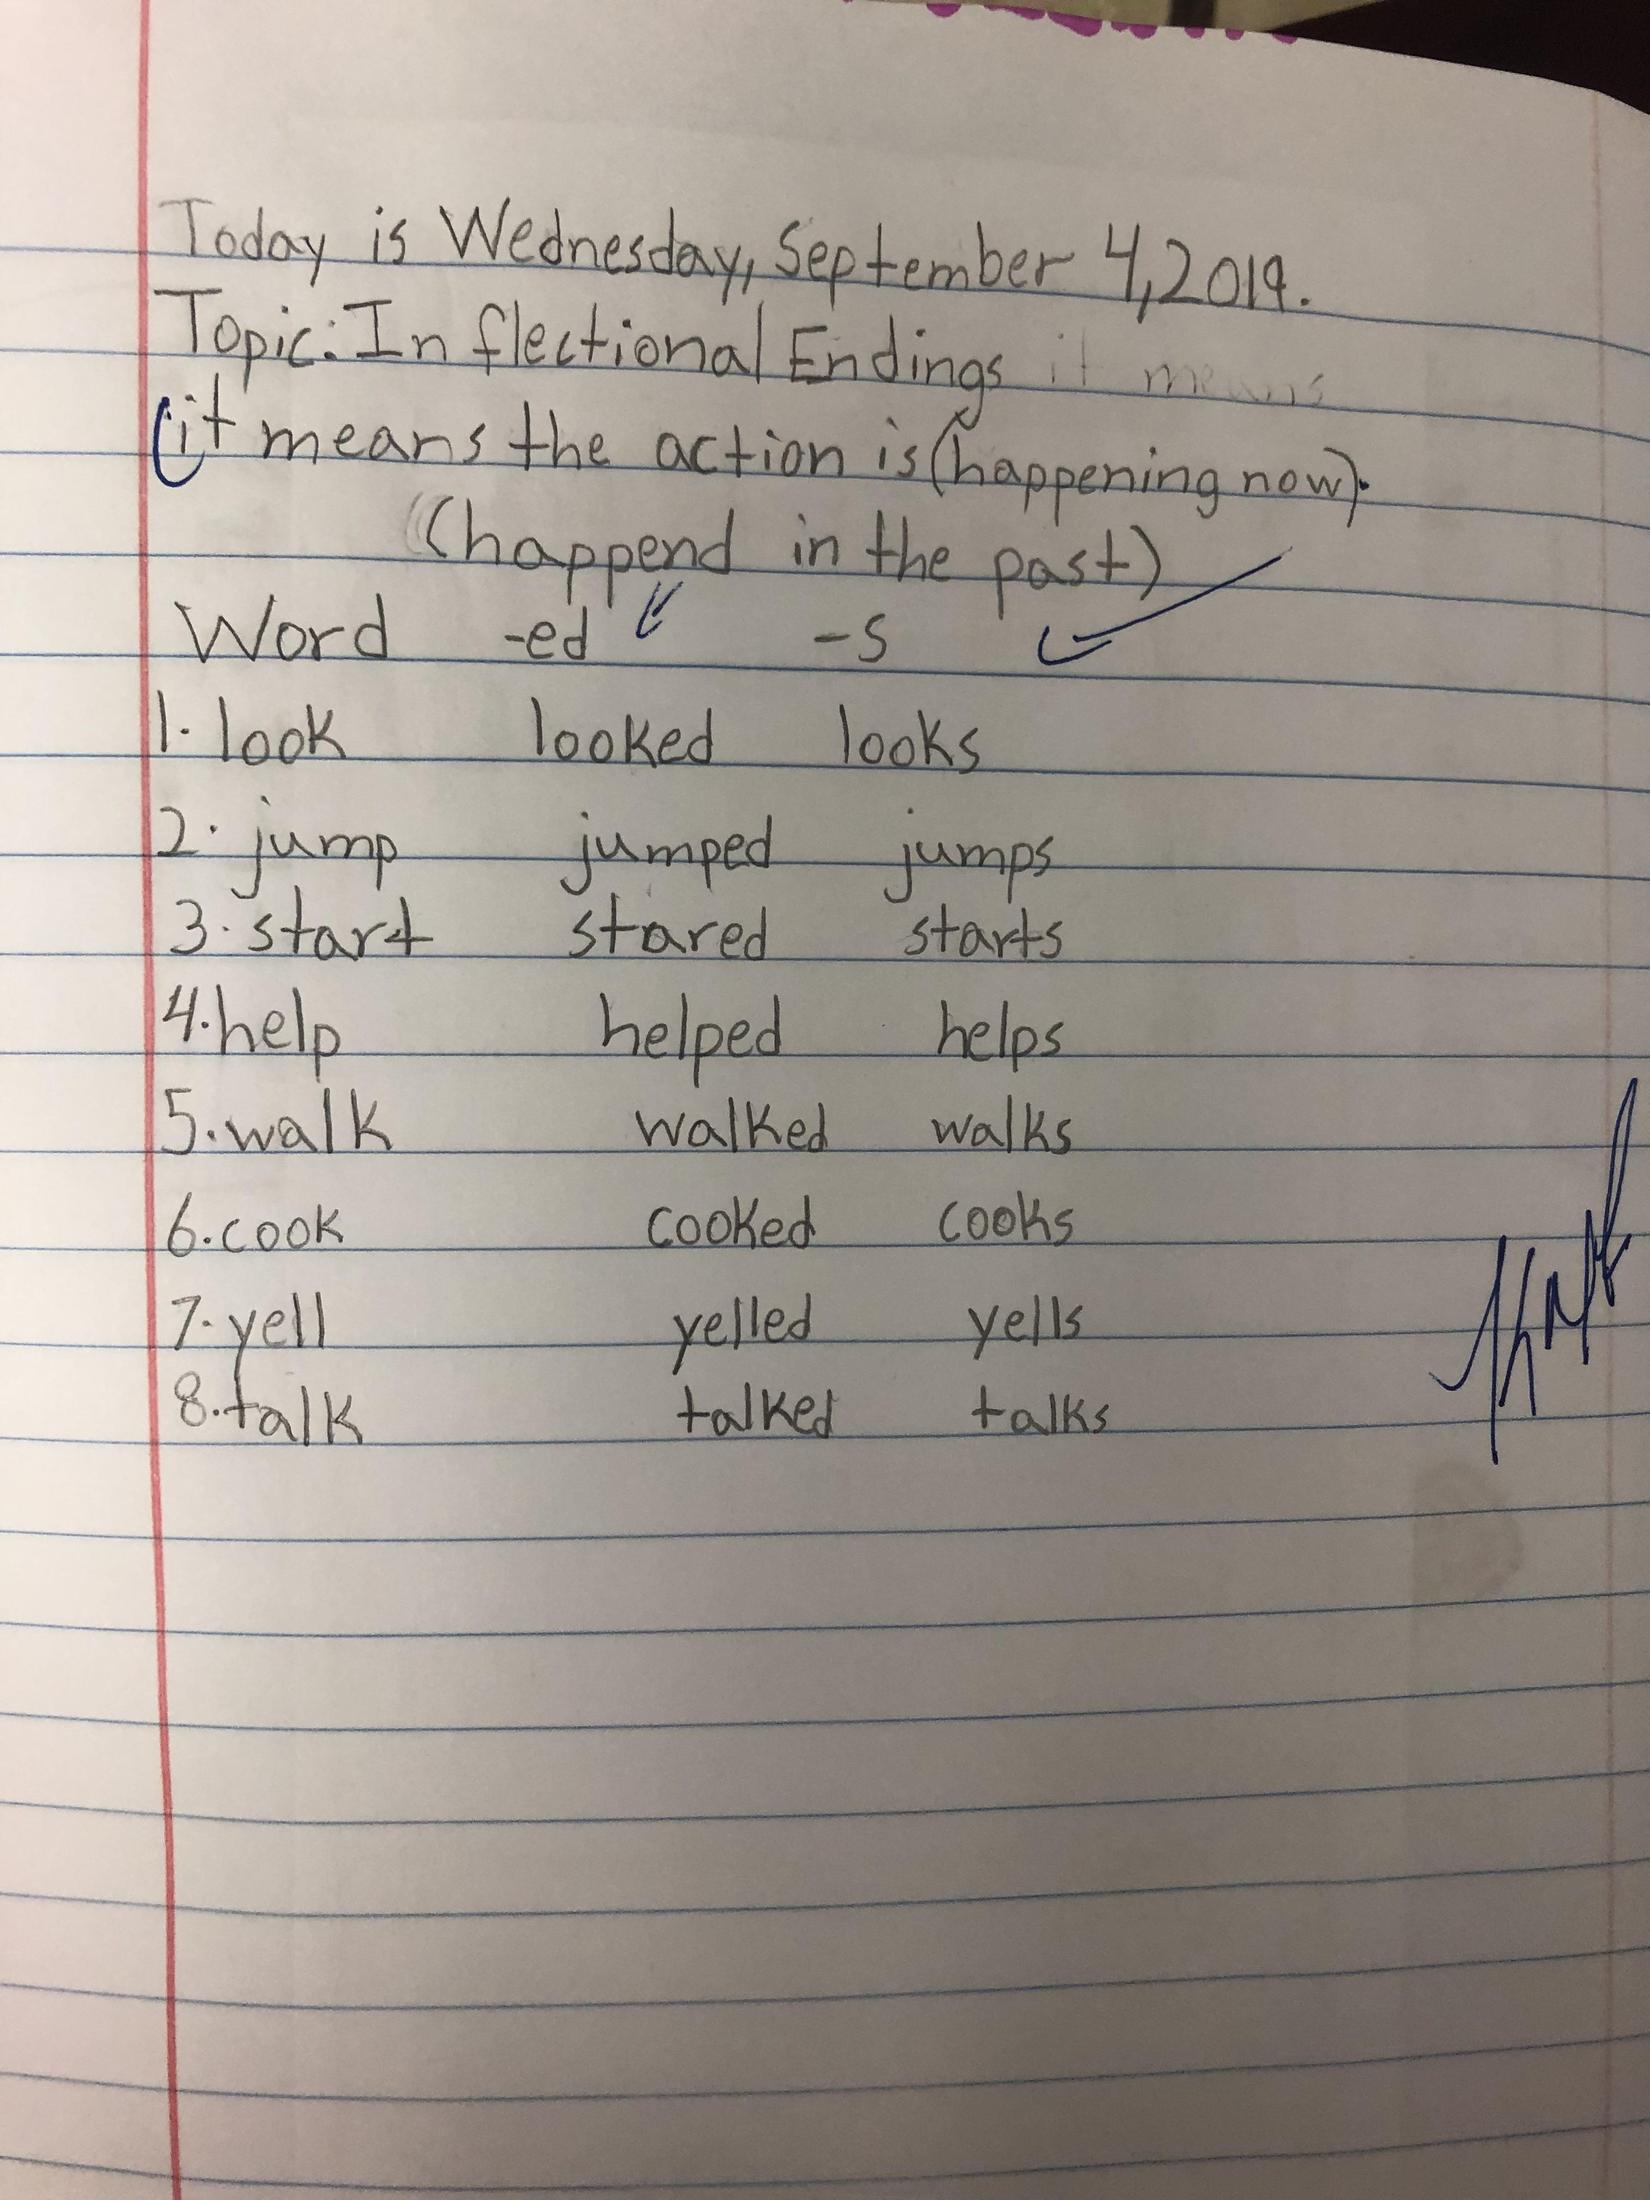 Today is Wednesday, September 4, 2019.
Topic: Inflectional Endings it means
(it means the action is (happening now).
(happend in the past)
Word -ed -s
1. look looked looks
2. jump jumped jumps
3. start stared starts
4. help helped helps
5. walk walked walks
6. cook cooked cooks
7. yell yelled yells
8. talk talked talks